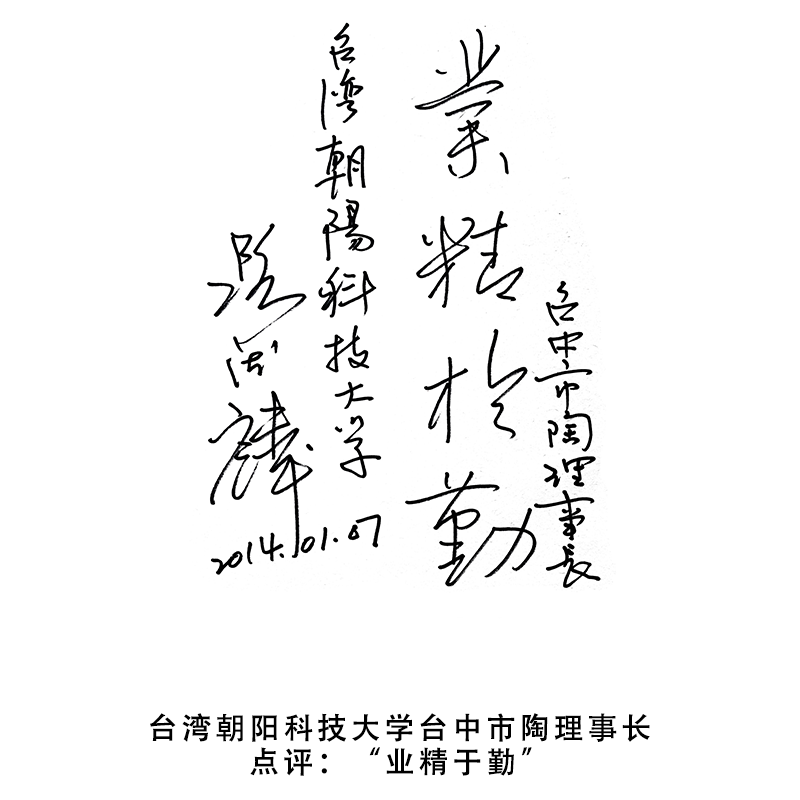 台中市陶理事長
業精於勤
台湾朝陽科技大学
2014.01.07
台湾朝阳科技大学台中市陶理事长
点评：“业精于勤”